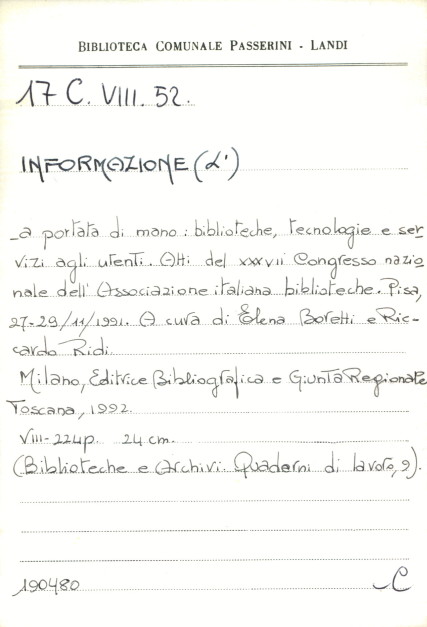 BIBLIOTECA COMUNALE PASSERINI - LANDI
17 C. VIII. 52.
INFORMAZIONE (L')
_a portata di mano : biblioteche, tecnologie e ser
vizi agli utenti. Atti del XXXVII Congresso nazio
nale dell'Associazione italiana biblioteche. Pisa,
27-29/11/1991. A cura di Elena Boretti e Ric-
cardo Ridi.
Milano, Editrice Bibliografica e Giunta Regionale
Toscana, 1992.
VIII-224p. 24 cm.
(Biblioteche e Archivi. Quaderni di lavoro, 9).
190480